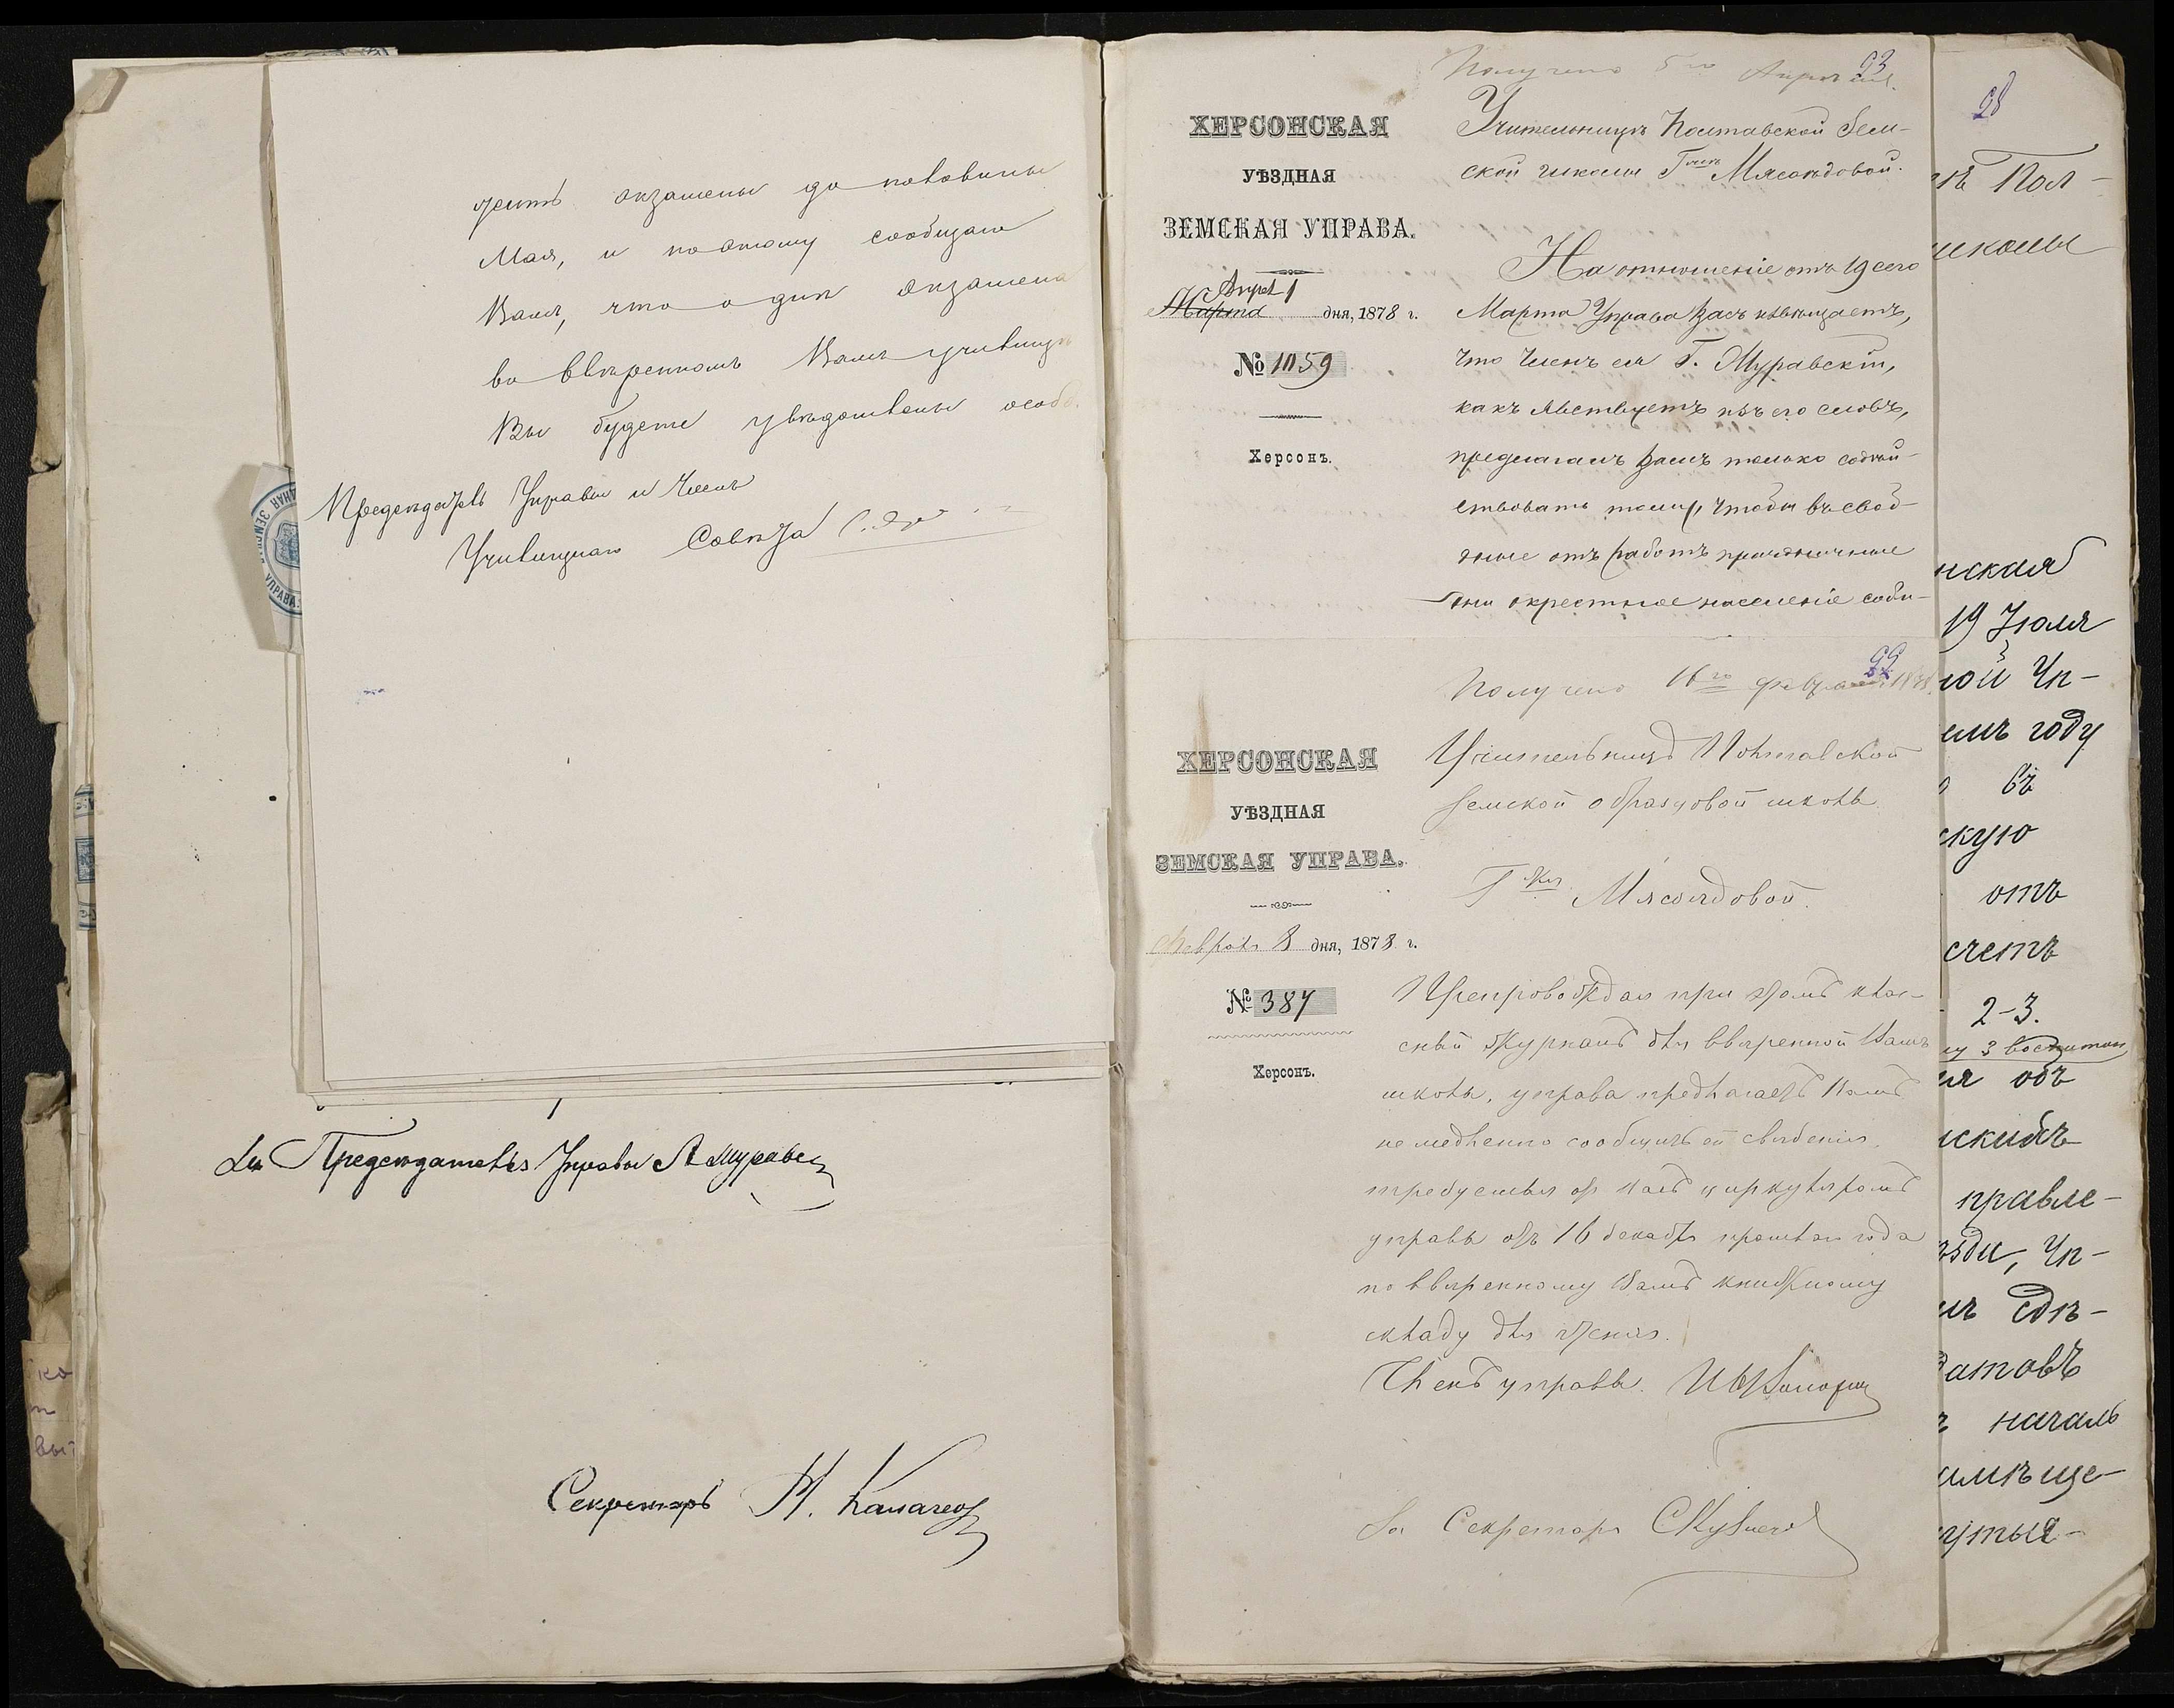 дить экзамены до половины
Мая, и потому сообщаю
Вамъ, что о днѣ экзамена
во ввѣренномъ Вамъ училищѣ
Вы будете увѣдомлены особо.
Предсѣдатель Управы и Членъ
Училищнаго Совѣта
За Предсѣдателя Управы А Мурав
Секретарь Н.
93
Получено 5го Апрѣля.
ХЕРСОНСКАЯ
УѢЗДНАЯ
ЗЕМСКАЯ УПРАВА.
Апрѣл 1
Марта дня, 1878 г.
№ 1059
Херсонъ.
Учительницѣ Полтавской Зем-
ской школы Г-жѣ Мясоѣдовой.
На отношеніе отъ 19 сего
Марта Управа Васъ извѣщаетъ,
что Членъ ея Г. Муравскій,
какъ явствуетъ изъ его словъ,
предлагалъ Вамъ только содѣй-
ствовать тому, чтобы въ свобод-
ные отъ работъ праздничные
дни окрестное населеніе соби-
Получено 16го Февраля 1878
ХЕРСОНСКАЯ
УѢЗДНАЯ
ЗЕМСКАЯ УПРАВА.
Февраля 8 дня, 1878 г.
№ 387
Херсонъ.
Учительницѣ Полтавской
Земской образцовой школы
Г-жѣ Мясоѣдовой.
Препровождая при этомъ клас-
сный журналъ для ввѣренной Вамъ
школы, управа предлагаетъ Вамъ
немедленно сообщить ей свѣденія,
требуемыя отъ Васъ циркуляромъ
управы отъ 16 декабря прошлаго года
по ввѣренному Вамъ книжному
складу для чтенія.
Членъ управы.
За Секретаря
98
Пол-
школы
нская
19 Юля
ной Уп-
емъ году
въ
скую
отъ
счетъ
2-3.
объ
правле-
Уп-
сдѣ-
датовъ
началѣ